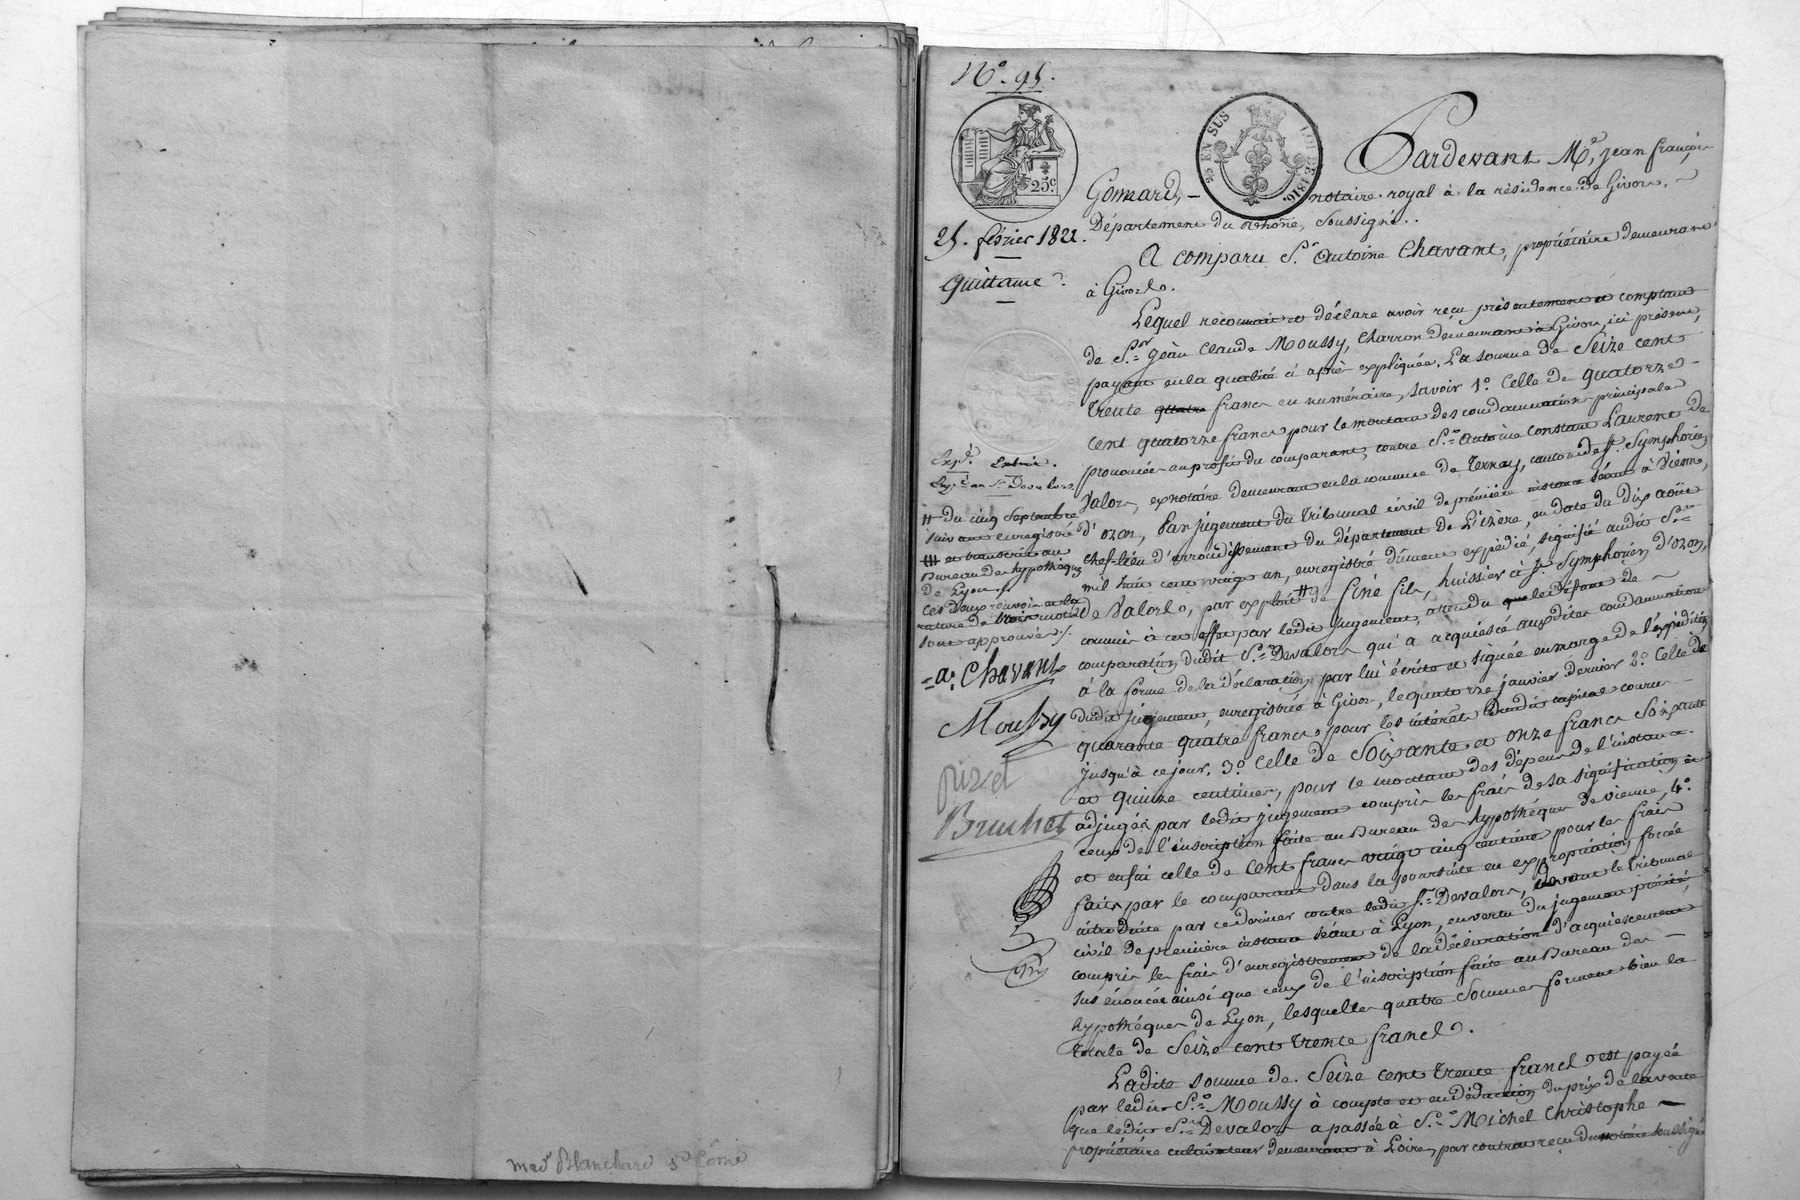 N.º 95.
25ᶜ
25 EN SUS
LOI DE 1816.
Pardevant Mᵉ, jean françois
Gomard, — notaire royal à la résidence de Givors, ~
Département du Rhône, soussigné..
25. février 1822.
quittance
A comparu S.ʳ Antoine Chavant, propriétaire demeurant
à Givors.
Lequel reconnait et déclare avoir reçu présentement et comptant
de S.ʳ jean Claude Moussy, Charron demeurant à Givors, ici présent,
payant en la qualité ci après expliquée. La somme de Seize cent
trente quatre francs en numéraire, savoir 1.º Celle de quatorze
cent quatorze francs pour le montant des condamnations principales
prononcées au profit du comparant, contre S.ʳ Antoine Constant Laurent de
Valors, exnotaire demeurant en la commune de Ternay, canton de S.ᵗ Symphorien
d'ozon, Par jugement du Tribunal civil de première instance séant à Vienne,
chef-lieu d'arrondissement du département de L'izère, en date du dix août
mil huit cent vingt un, enregistré dûment expédié, signifié audit S.ʳ
de Valors, par exploit # de finé fils, huissier à S.ᵗ Symphorien d'ozon,
commis à cet effet par ledit jugement, attendu que le défaut de ~
comparution dudit S.ʳ Devalors qui a acquiescé auxdites condamnations
à la forme de la déclaration par lui écrite et signée en marge de l'expédition
dudit jugement, enregistrée à Givors, le quatorze janvier dernier 2.º Celle de
quarante quatre francs, pour les intérêts dudit capital courus —
jusqu'à ce jour. 3.º Celle de Soixante et onze francs Soixante
et quinze centimes, pour le montant des dépens de l'instance
adjugés par ledit jugement compris les frais de sa signification et
ceux de l'inscription faite au Bureau des hypothéques de vienne, 4.º
et enfin celle de Cent francs vingt cinq centimes pour les frais
faits par le comparant dans la poursuite en expropriation forcée
introduite par ce dernier contre ledit S.ʳ Devalors, devant le Tribunal
civil de première instance séant à Lyon, en vertu du jugement précité,
compris les frais d'enregistrement de la déclaration d'acquiescement
sus énoncée ainsi que ceux de l'inscription faite au Bureau des —
hypothéques de Lyon, lesquelles quatre Sommes forment bien la
totale de Seize cent trente francs.
Ladite somme de Seize cent trente francs est payée
par ledit S.ʳ Moussy à compte et en déduction du prix de la vente
que ledit S.ʳ Devalors a passée à S.ʳ Michel Christophe —
propriétaire cultivateur demeurant à Loire, par contrat reçu du notaire soussigné
Exp.é Extrait.
Exp.é au S.ʳ Devalors
# du cinq Septembre
suivant enregistré
## et transcrite au
Bureau des hypothéques
de Lyon.
Ces deux renvois et la
rature de trois mots
sont approuvés.
a. Chavant
Moussy
pizet
Bruchet
mad.ᵉ Blanchard S.ᵗ Côme